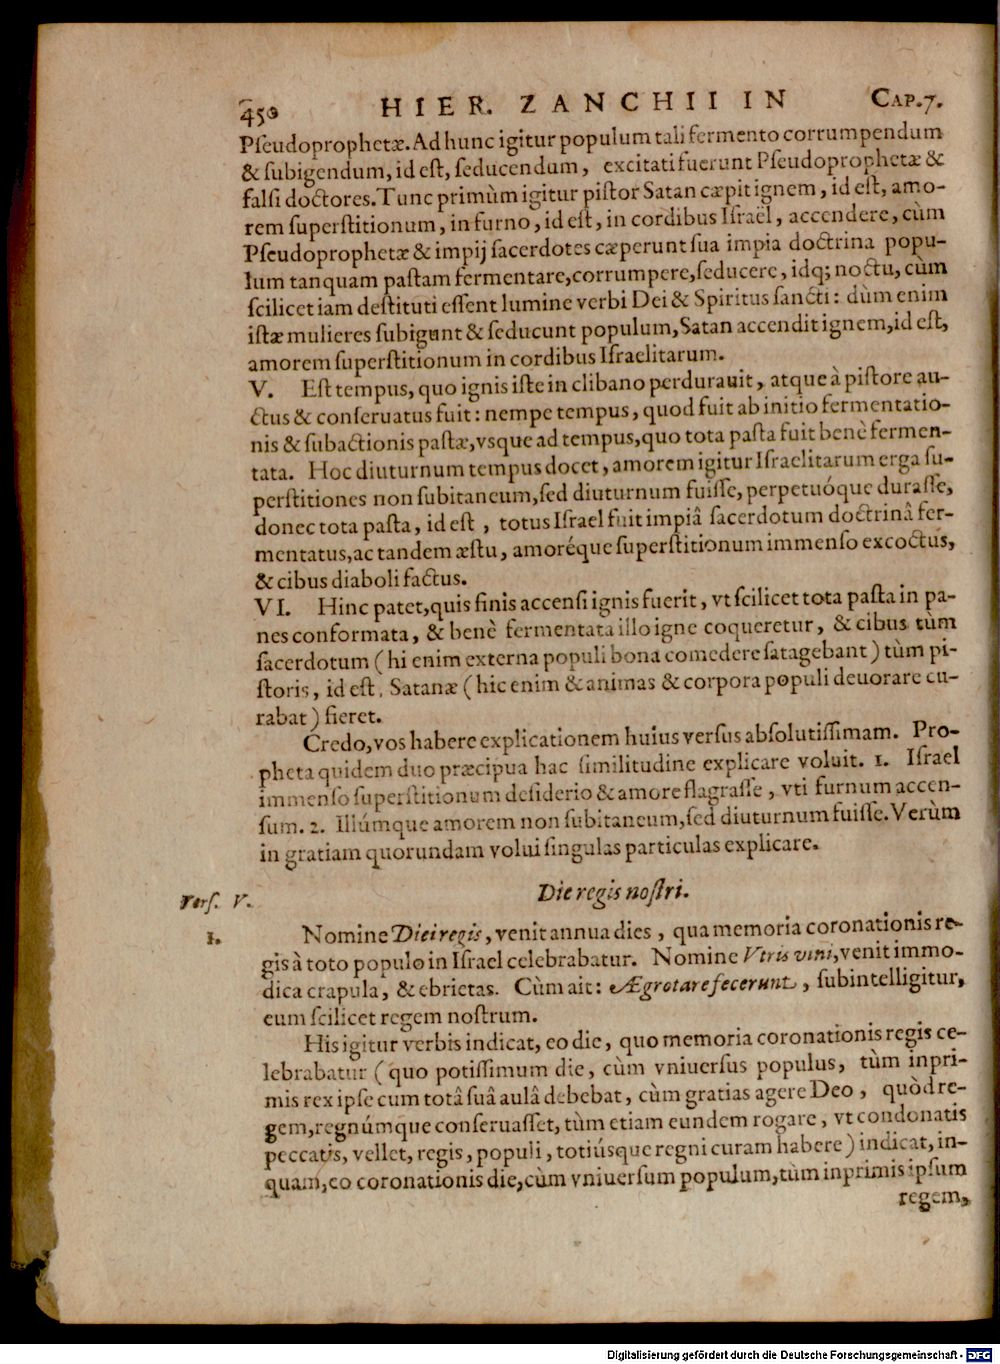 450 HIER. ZANCHII IN CAP.7.
Pſeudoprophetæ. Ad hunc igitur populum tali fermento corrumpendum
& ſubigendum, id eſt, ſeducendum, excitati fuerunt Pſeudoprophetæ &
falſi doctores. Tunc primùm igitur piſtor Satan cæpit ignem, id eſt, amo-
rem ſuperſtitionum, in furno, id eſt, in cordibus Iſraël, accendere, cùm
Pſeudoprophetæ & impij ſacerdotes cæperunt ſua impia doctrina popu-
lum tanquam paſtam fermentare, corrumpere, ſeducere, idq; noctu, cùm
ſcilicet iam deſtituti eſſent lumine verbi Dei & Spiritus ſancti: dùm enim
iſtæ mulieres ſubigunt & ſeducunt populum, Satan accendit ignem, id eſt,
amorem ſuperſtitionum in cordibus Iſraelitarum.
V. Eſt tempus, quo ignis iſte in clibano perdurauit, atque à piſtore au-
ctus & conſeruatus fuit: nempe tempus, quod fuit ab initio fermentatio-
nis & ſubactionis paſtæ, vsque ad tempus, quo tota paſta fuit benè fermen-
tata. Hoc diuturnum tempus docet, amorem igitur Iſraelitarum erga ſu-
perſtitiones non ſubitaneum, ſed diuturnum fuiſſe, perpetuóque duraſſe,
donec tota paſta, id eſt, totus Iſrael fuit impiâ ſacerdotum doctrinâ fer-
mentatus, ac tandem æſtu, amoréque ſuperſtitionum immenſo excoctus,
& cibus diaboli factus.
VI. Hinc patet, quis finis accenſi ignis fuerit, vt ſcilicet tota paſta in pa-
nes conformata, & benè fermentata illo igne coqueretur, & cibus tùm
ſacerdotum (hi enim externa populi bona comedere ſatagebant) tùm pi-
ſtoris, id eſt, Satanæ (hic enim & animas & corpora populi deuorare cu-
rabat) fieret.
Credo, vos habere explicationem huius verſus abſolutiſſimam. Pro-
pheta quidem duo præcipua hac ſimilitudine explicare voluit. 1. Iſrael
immenſo ſuperſtitionum deſiderio & amore flagraſſe, vti furnum accen-
ſum. 2. Illúmque amorem non ſubitaneum, ſed diuturnum fuiſſe. Verùm
in gratiam quorundam volui ſingulas particulas explicare.
Die regis noſtri.
Verſ. V.
1. Nomine Diei regis, venit annua dies, qua memoria coronationis re-
gis à toto populo in Iſrael celebrabatur. Nomine Vtris vini, venit immo-
dica crapula, & ebrietas. Cùm ait: Ægrotare fecerunt, ſubintelligitur,
eum ſcilicet regem noſtrum.
His igitur verbis indicat, eo die, quo memoria coronationis regis ce-
lebrabatur (quo potiſſimum die, cùm vniuerſus populus, tùm inpri-
mis rex ipſe cum totâ ſuâ aulâ debebat, cùm gratias agere Deo, quòd re-
gem, regnúmque conſeruaſſet, tùm etiam eundem rogare, vt condonatis
peccatis, vellet, regis, populi, totiúsque regni curam habere) indicat, in-
quam, eo coronationis die, cùm vniuerſum populum, tùm inprimis ipſum
regem,
Digitalisierung gefördert durch die Deutsche Forschungsgemeinschaft - DFG